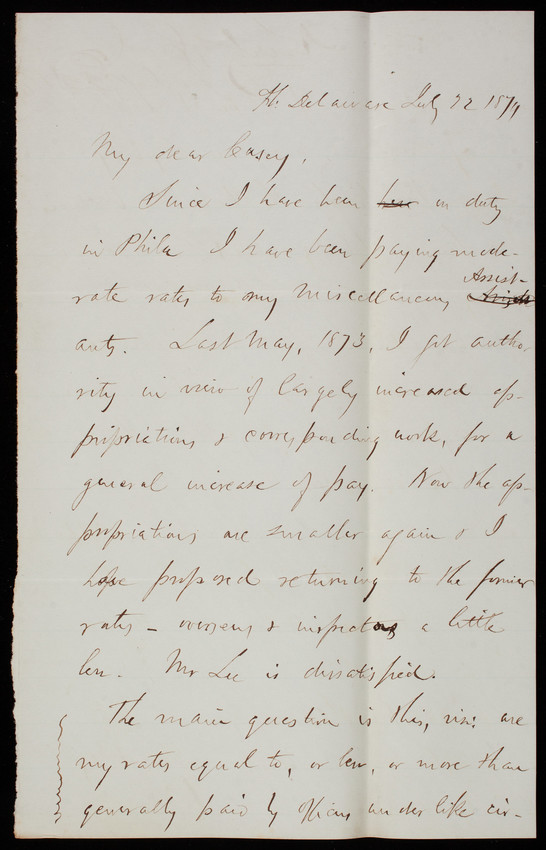 Ft. Delaware July 22 1874
My dear Casey,
Since I have been here on duty
in Phila I have been paying mode-
rate rates to my miscellaneous Assist-
ants. Last May, 1873, I got autho
rity in view of largely increased ap-
propriations & corresponding work, for a
general increase of pay. Now the ap-
propriations are smaller again & I
have proposed returning to the former
rates - overseers & inspectors a little
less. Mr Lee is dissatisfied.
The main question is this, viz: are
my rates equal to, or less, or more than
generally paid by officers under like cir-